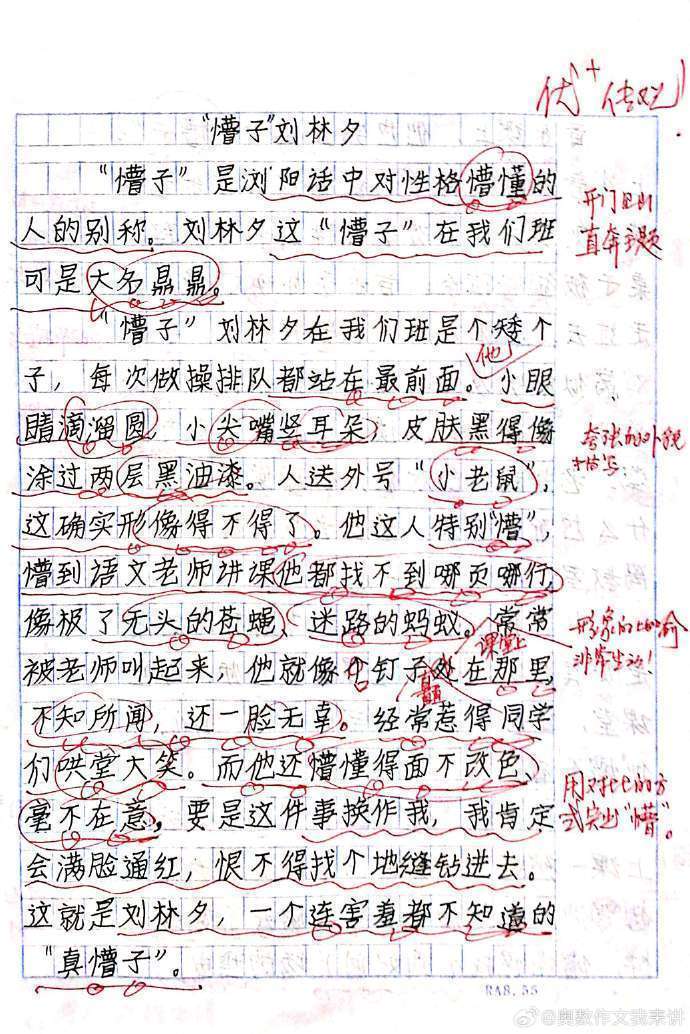 优⁺ 传观
"懵子"刘林夕
"懵子"是浏阳话中对性格懵懂的
人的别称。刘林夕这"懵子"在我们班
可是大名鼎鼎。
开门见山
直奔主题
"懵子"刘林夕在我们班是个矮个
子，每次做操排队都站在最前面。小眼
他
睛滴溜圆，小尖嘴竖耳朵，皮肤黑得像
涂过两层黑油漆。人送外号"小老鼠"，
夸张的外貌
描写
这确实形像得不得了。他这人特别"懵"，
懵到语文老师讲课他都找不到哪页哪行，
像极了无头的苍蝇、迷路的蚂蚁。常常
课堂上
被老师叫起来，他就像个钉子处在那里，
形象的比喻
非常生动！
不知所闻，还一脸无辜。经常惹得同学
们哄堂大笑。而他还懵懂得面不改色、
毫不在意，要是这件事换作我，我肯定
用对比的方
式突出"懵"。
会满脸通红，恨不得找个地缝钻进去。
这就是刘林夕，一个连害羞都不知道的
"真懵子"。
RA8.55
@奥数作文我来讲